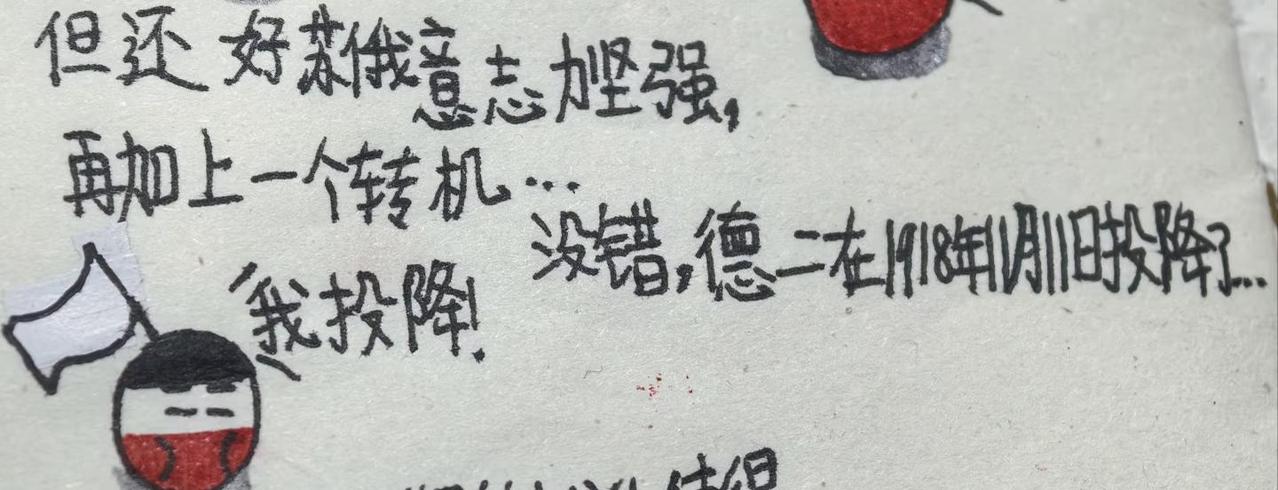 但还好苏俄意志力坚强，
再加上一个转机…
没错，德二在1918年11月11日投降了…
我投降！